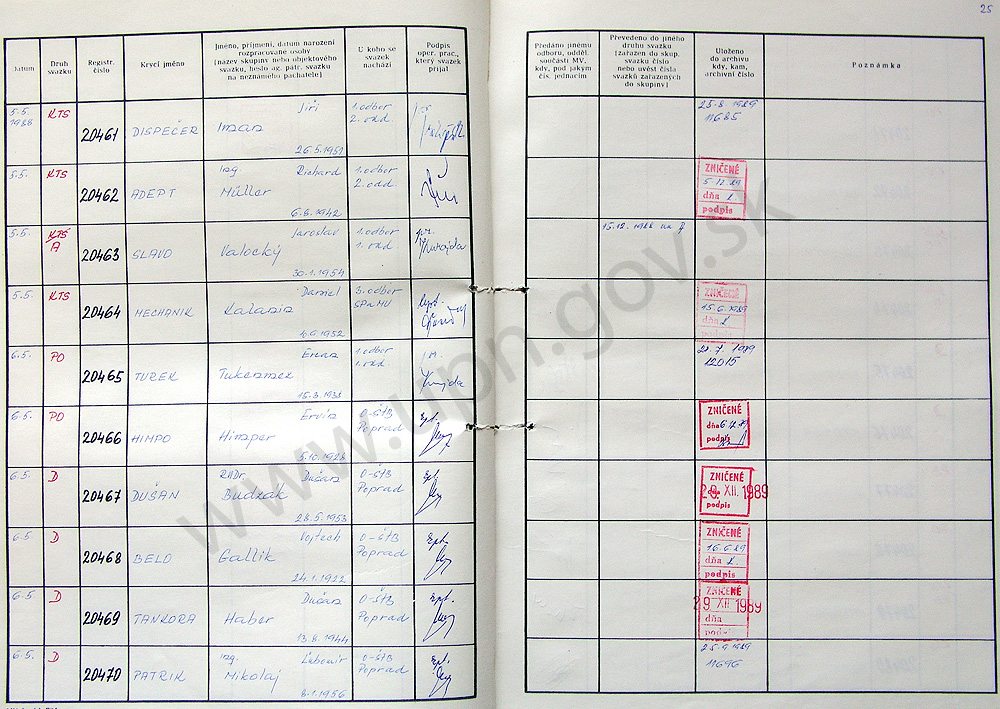 25
Datum
Druh svazku
Registr. číslo
Krycí jméno
Jméno, příjmení, datum narození
rozpracované osoby
(název skupiny nebo objektového
svazku, heslo ag. pátr. svazku
na neznámého pachatele)
U koho se
svazek
nachází
Podpis
oper. prac.,
který svazek
přijal
Předáno jinému
odboru, odděl.
součásti MV,
kdy, pod jakým
čís. jednacím
Převedeno do jiného
druhu svazku
(zařazen do skup.
svazku číslo
nebo uvést čísla
svazků zařazených
do skupiny)
Uloženo
do archivu
kdy, kam,
archivní číslo
Poznámka
5.5. 1988 KTS 20461 DISPEČER Jiří 26.5.1951 1. odbor 2. odd.
25.8.1989
11685
5.5. KTS 20462 ADEPT Ing. Richard Müller 6.8.1942 1. odbor 2. odd.
ZNIČENÉ
5.12.89
dňa
podpis
5.5. KTS A 20463 SLAVO Jaroslav Valocký 30.1.1954 1. odbor 1. odd.
15.12.1988 na A
5.5. KTS 20464 MECHANIK Daniel 1952 3. odbor SPaMV
ZNIČENÉ
15.6.1989
dňa
6.5. PO 20465 TUREK 1. odbor 1. odd.
1989
12015
6.5. PO 20466 HIMPO Ervín Himper 5.10.1928 O-ŠTB Poprad
ZNIČENÉ
dňa
podpis
6.5. D 20467 DUŠAN RNDr. Dušan Budzak 28.5.1953 O-ŠTB Poprad
ZNIČENÉ
29. XII. 1989
podpis
6.5. D 20468 BELO Vojtech Gallik 24.1.1922 O-ŠTB Poprad
ZNIČENÉ
16.6.89
dňa
podpis
6.5. D 20469 TANKORA Dušan Haber 13.8.1944 O-ŠTB Poprad
ZNIČENÉ
29 XII 1989
dňa
6.5. D 20470 PATRIK Ing. Ľubomír Mikolaj 8.1.1956 O-ŠTB Poprad
25.9.1989
11696
www.upn.gov.sk